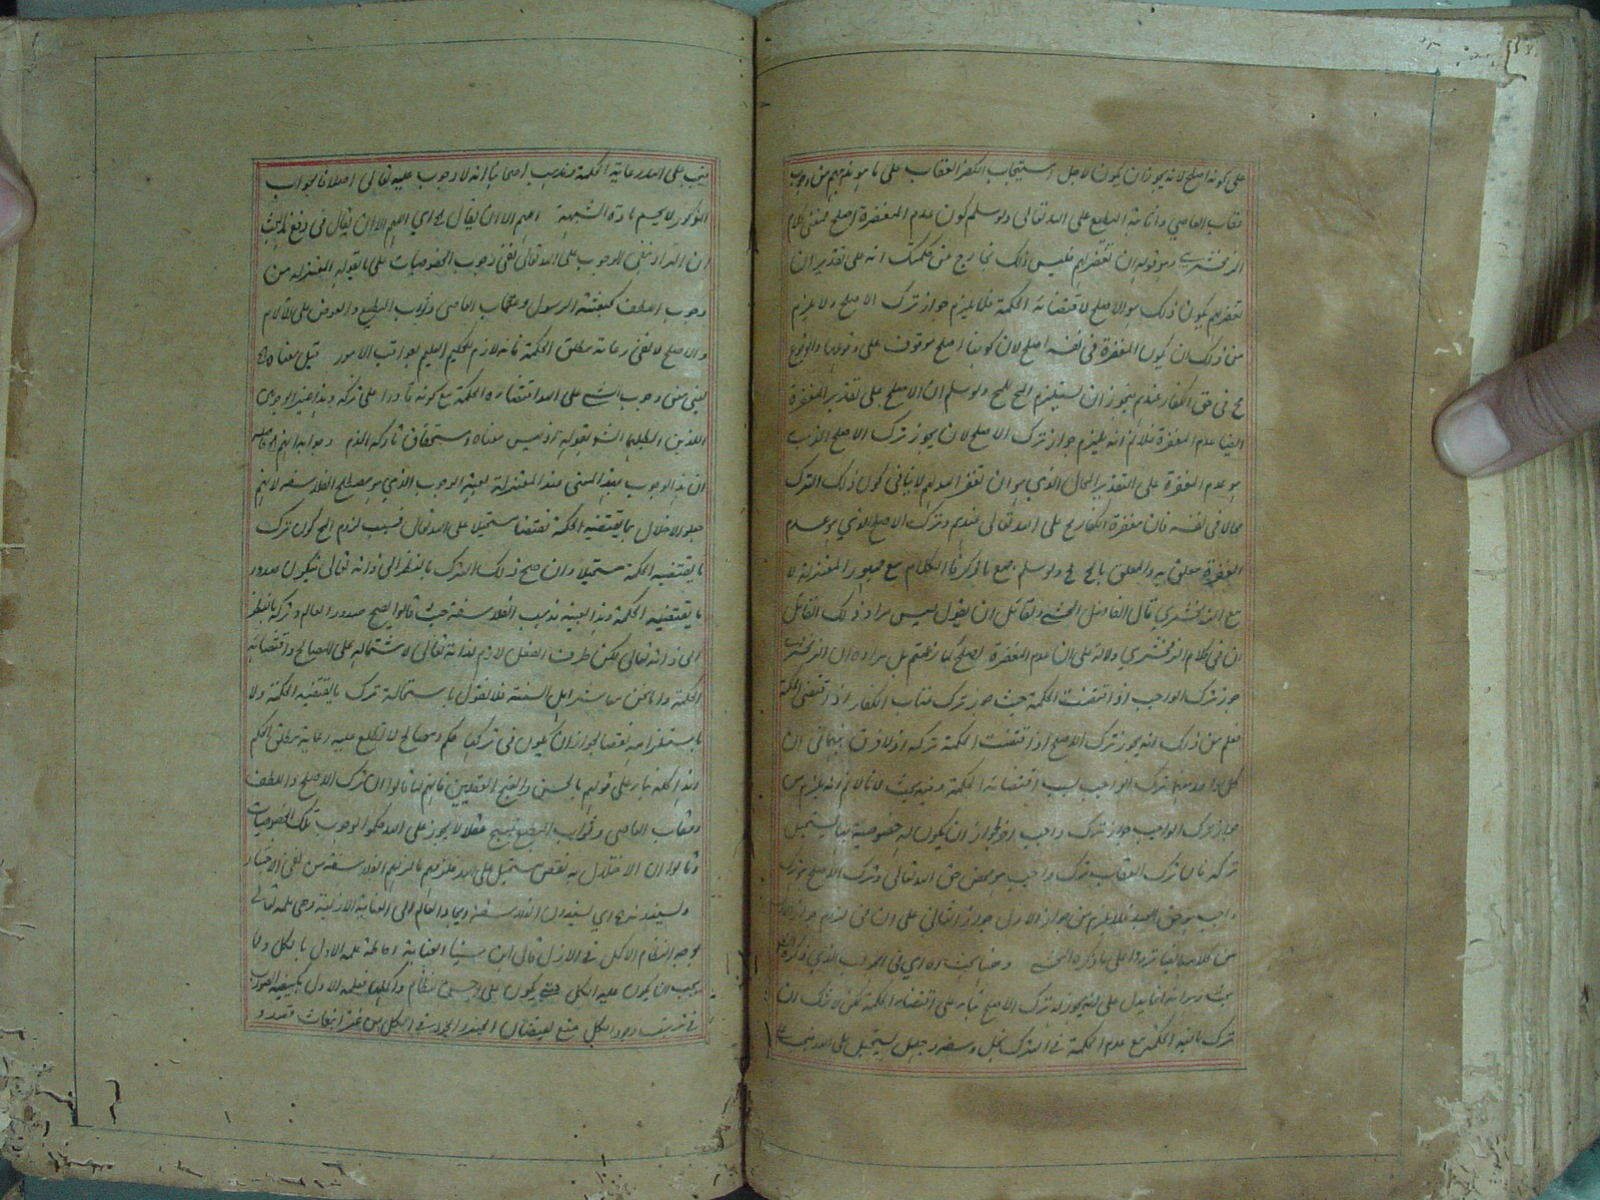 على كونه اصلح لانه يجوز ان يكون لاجل استيجاب الكفر العقاب على ما هو مذهبهم من وجوب
عقاب العاصي واثابة المطيع على الله تعالى ولو سلم كون عدم المغفرة اصلح فمعنى كلام
الزمخشري وهو قوله ان تغفر لهم فليس ذلك بخارج عن حكمتك انه على تقدير ان
تغفر لهم يكون ذلك هو الاصلح لاقتضائه الحكمة فلا يلزم جواز ترك الاصلح ولا يلزم
من ذلك ان يكون المغفرة في نفسه اصلح لان كونها اصلح موقوف على وقوعها والوقوع
مح في حق الكفار عندهم فيجوز ان يستلزم المح المح ولو سلم ان الاصلح على تقدير المغفرة
ايضا عدم المغفرة فلا نم انه يلزم جواز ترك الاصلح لان يجوز ترك الاصلح الذي
هو عدم المغفرة على التقدير المحال الذي هو ان تغفر الله لهم لا ينافي كون ذلك الترك
محالا في نفسه فان مغفرة الكفار مح على الله تعالى عندهم وترك الاصلح الذي هو عدم
المغفرة معلق به والمعلق بالمح مح ولو سلم جميع ما ذكر فالكلام مع جمهور المعتزلة لا
مع الزمخشري قال الفاضل المحشي ولقائل ان يقول ليس مراد ذلك القائل
ان في كلام الزمخشري دلالة على ان عدم المغفرة اصلح كما زعمتم بل مراده ان الزمخشري
جوز ترك الواجب اذا اقتضت الحكمة حيث جوز ترك عقاب الكفار اذا اقتضى الحكمة
فعلم من ذلك انه يجوز ترك الاصلح اذا اقتضت الحكمة تركه اذ لا فرق بينهما في ان
كل واحد منهما ترك الواجب لسبب اقتضائه الحكمة وفيه بحث لانا لا نم انه يلزم من
جواز ترك الواجب جواز ترك واجب اخر لجواز ان يكون له خصوصية بها يستحيل
تركه فان ترك العقاب ترك واجب هو محض حق الله تعالى وترك الاصلح هو ترك
واجب هو حق العبد فلا يلزم من جواز الاول جواز الثاني على ان في لزوم جواز
من كلامه ايضا ترددا على ما ذكره المحشي وههنا بحث اه اي في الجواب الذي ذكره
بحث وهو انه انما يدل على انه يجوز له ترك الاصلح بناء على اقتضائه الحكمة لكن لا شك ان
ترك ما فيه الحكمة مع عدم الحكمة في الترك بخل وسفه وجهل يستحيل على الله فيجب
فيجب على الله رعاية الحكمة ومذهب اصحابنا انه لا وجوب عليه تعالى اصلا فالجواب
المذكور لا يحسم مادة الشبهة اللهم الا ان يقال اه اي اللهم الا ان يقال في دفع البحث
ان المراد بنفي الوجوب على الله تعالى نفي وجوب الخصوصيات على ما يقوله المعتزلة من
وجوب اللطف كبعثة الرسول وعقاب العاصي وثواب المطيع والعوض على الآلام
والاصلح لا نفي رعاية مطلق الحكمة فانه لازم للحكيم العليم بعواقب الامور قيل معناه
يعني معنى وجوب الشيء على الله اقتضاء الحكمة مع كونه قادرا على تركه وهذا غير الوجوبين
اللذين ابطلهما الش بقوله اذ ليس معناه استحقاق تاركه الذم
ان هذا الوجوب بهذا المعنى عند المعتزلة بعينه الوجوب الذي هو مصطلح الفلاسفة لانهم
جعلوا الاخلال بما يقتضيه الحكمة نقضا مستحيلا على الله تعالى فسبب لزوم المح كون ترك
ما يقتضيه الحكمة مستحيلا وان صح ذلك الترك بالنظر الى ذاته تعالى فيكون صدور
ما يقتضيه الحكمة وهذا بعينه مذهب الفلاسفة حيث قالوا يصح صدور العالم وتركه بالنظر
الى ذاته تعالى لكن طرف الفعل لازم لذاته تعالى لاشتماله على المصالح واقتضائه
الحكمة واما نحن معاشر اهل السنة فلا نقول باستحالة ترك ما يقتضيه الحكمة ولا
باستلزامه نقصا لجواز ان يكون في تركها حكم ومصالح لا نطلع عليه رعاية مطلق الحكم
وهذا كله بناء على قولهم بالحسن والقبح العقليين فانهم لما قالوا ان ترك الاصلح واللطف
وعقاب العاصي وثواب المطيع قبيح عقلا لا يجوز على الله حكموا الوجوب تلك الخصوصيات
وقالوا ان الاخلال به نقص مستحيل على الله فلزمهم ما لزمهم الفلاسفة من نفي الاختيار
ويسندونه اه اي يسندون الفلاسفة ايجاد العالم الى العناية الازلية وهي علمه تعالى
بوجه النظام الاكمل في الازل قال ابن سينا العناية احاطة علمه الاول بالكل وما
يجب ان يكون عليه الكل حتى يكون على احسن النظام فعلم الاول بكيفية الصواب
في ترتيب وجود الكل منبع لفيضان الخير والجود في الكل من غير انبعاث قصد و